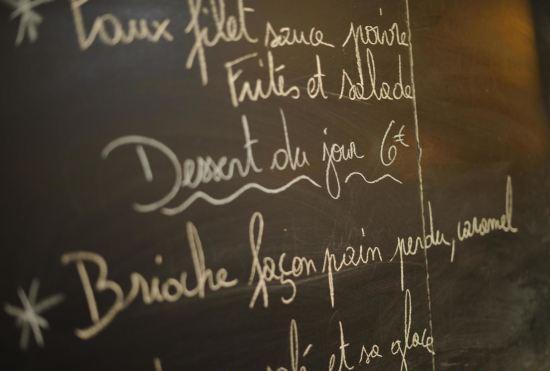 Faux filet sauce poivre
Frites et salade
Dessert du jour 6€
Brioche façon pain perdu, caramel
et sa glace